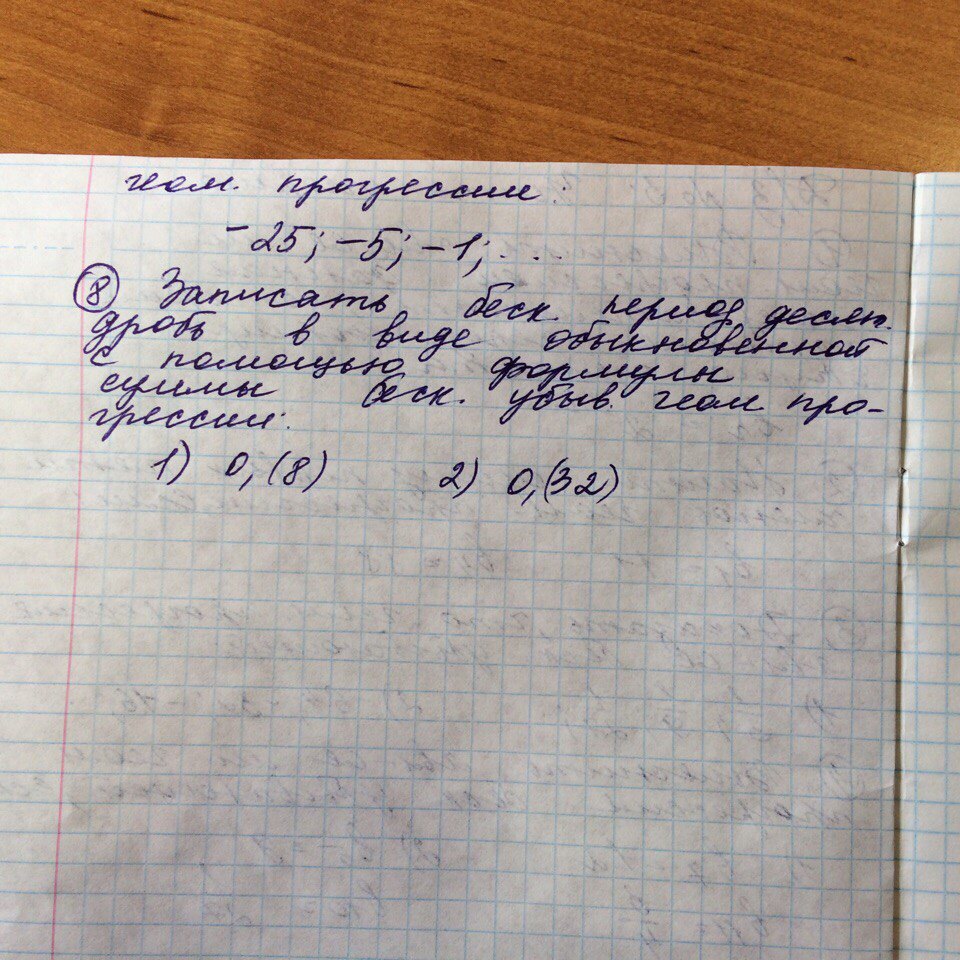 геом. прогрессии
-25; -5; -1; ...
8 Записать беск. период. десят.
дробь в виде обыкновенной
с помощью формулы
суммы беск. убыв. геом. про-
грессии:
1) 0,(8) 2) 0,(32)